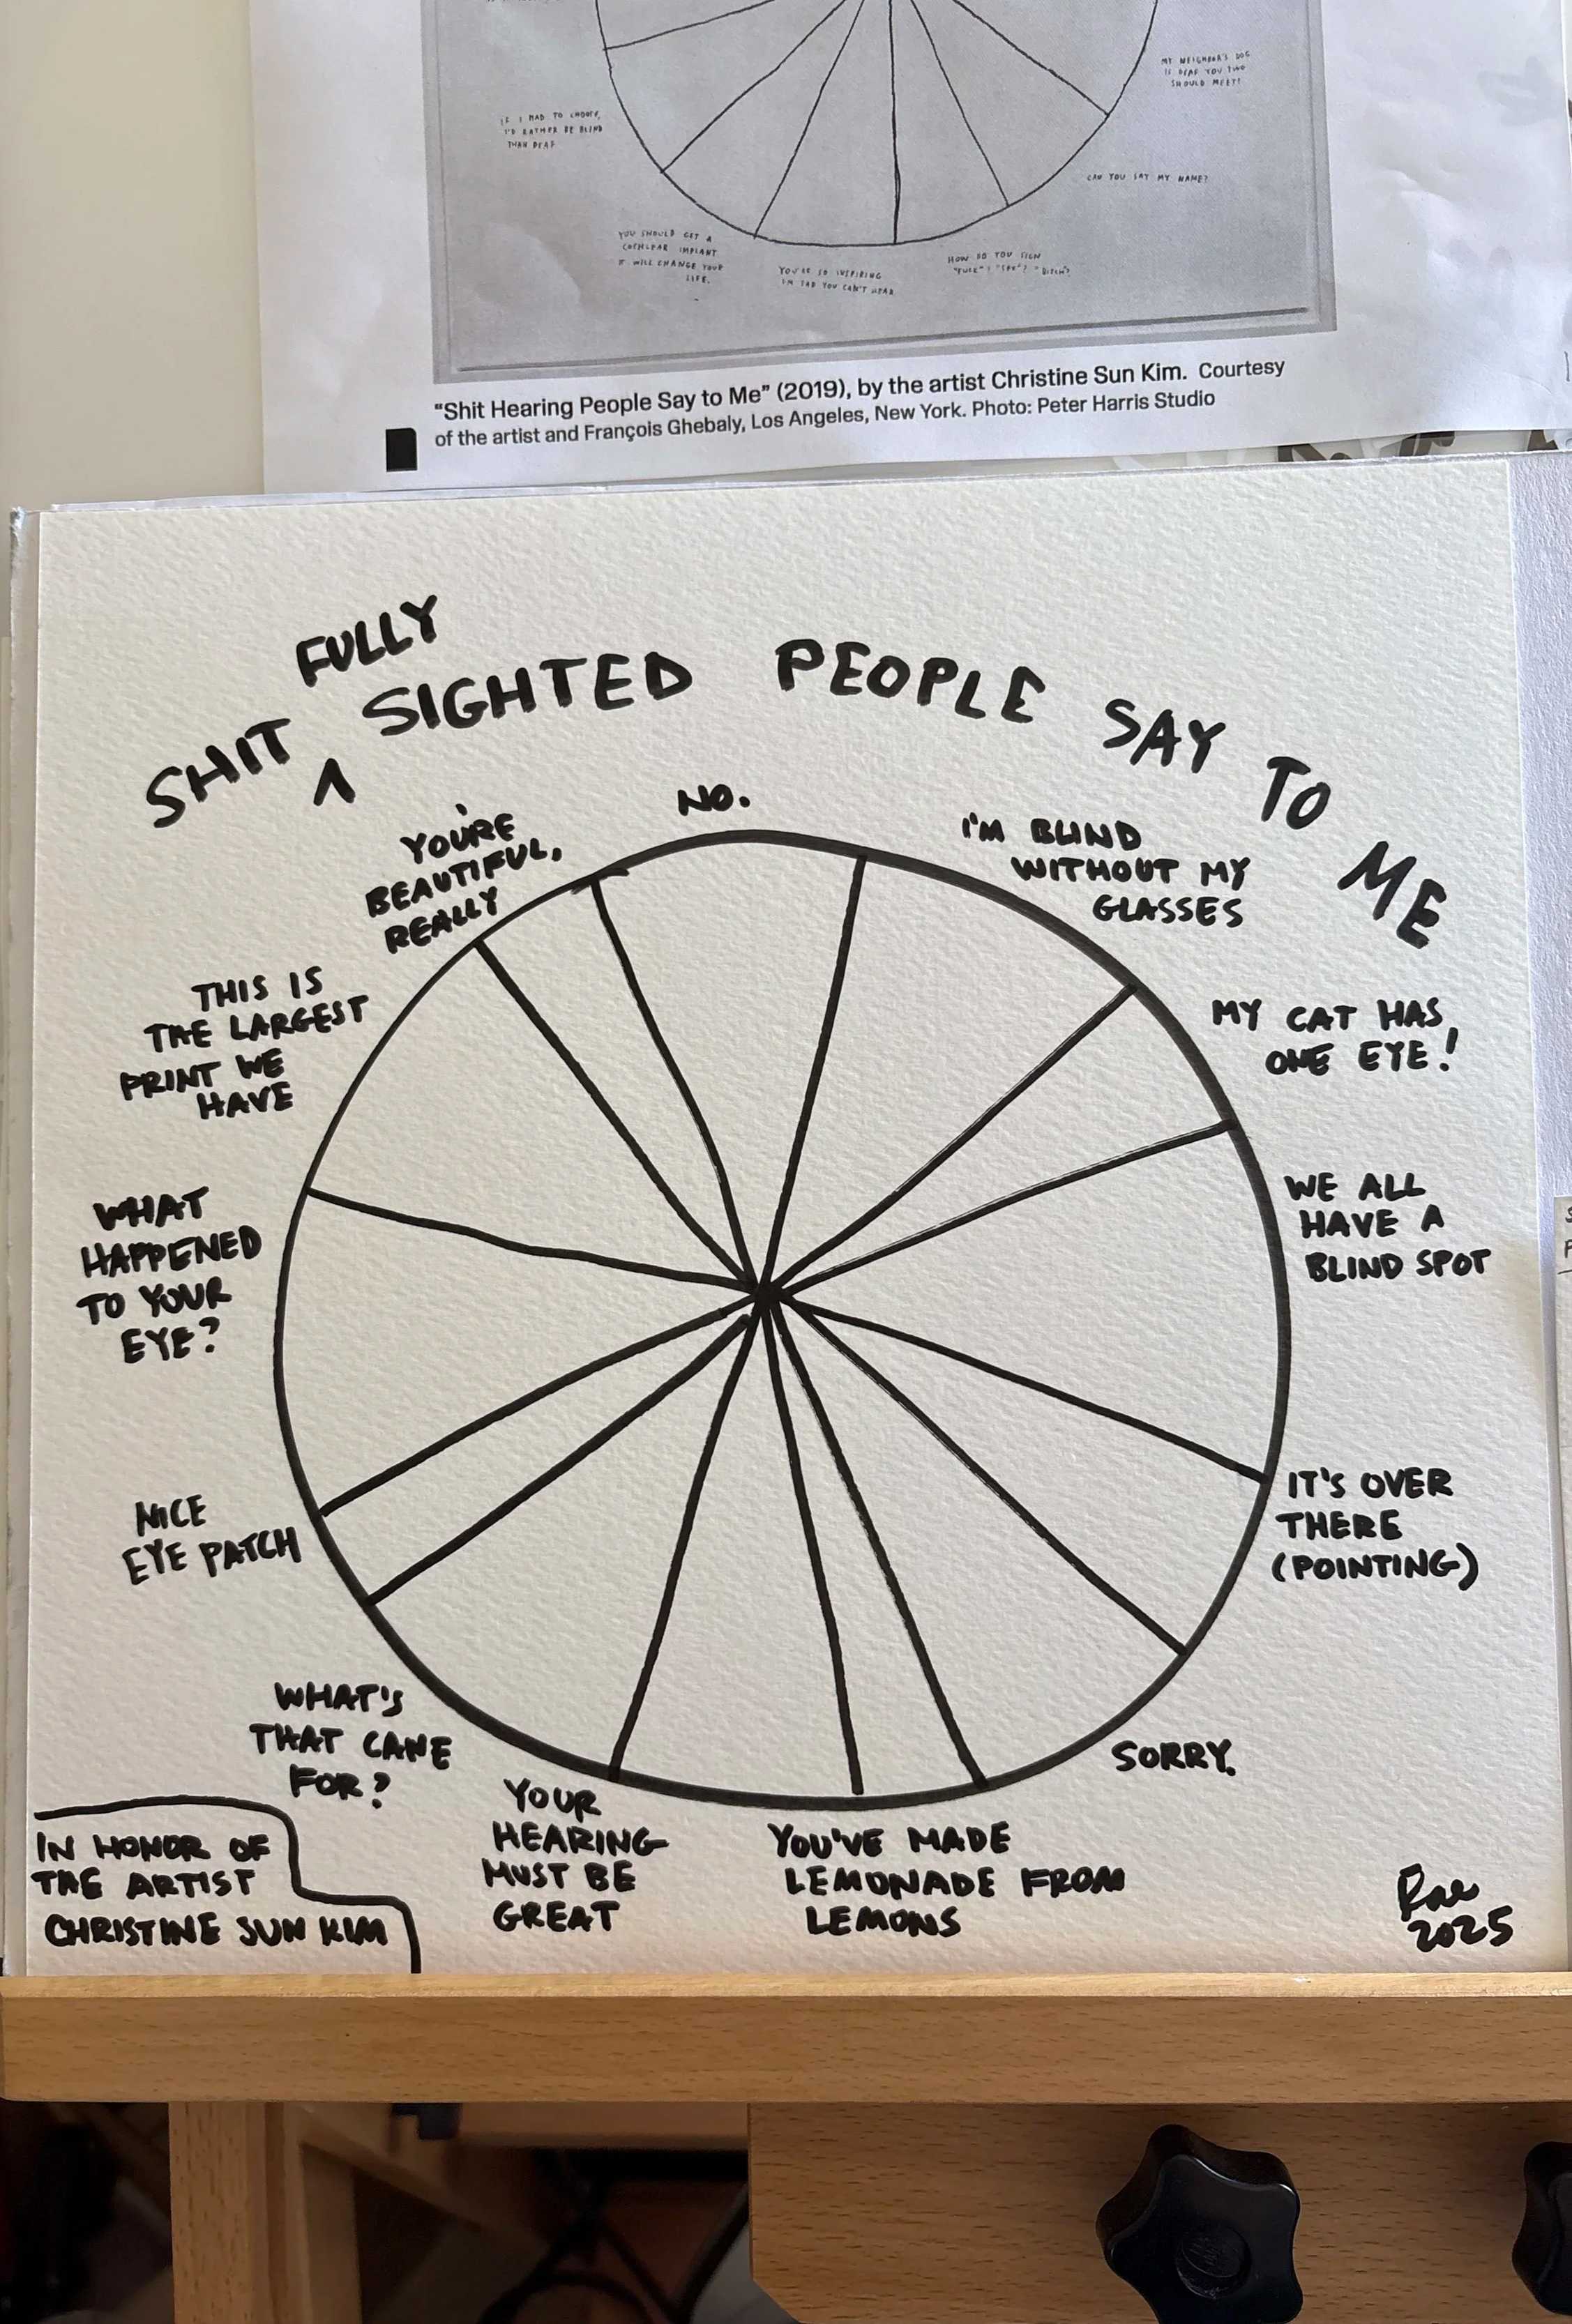 MY NEIGHBOR'S DOG
IS DEAF YOU TWO
SHOULD MEET!
IF I HAD TO CHOOSE,
I'D RATHER BE BLIND
THAN DEAF
CAN YOU SAY MY NAME?
YOU SHOULD GET A
COCHLEAR IMPLANT
IT WILL CHANGE YOUR
LIFE.
YOU'RE SO INSPIRING
I'M SAD YOU CAN'T HEAR
HOW DO YOU SIGN
"FUCK"? "BITCH"?
“Shit Hearing People Say to Me” (2019), by the artist Christine Sun Kim. Courtesy
of the artist and François Ghebaly, Los Angeles, New York. Photo: Peter Harris Studio
FULLY
SHIT ^ SIGHTED PEOPLE SAY TO ME
NO.
I'M BLIND
WITHOUT MY
GLASSES
MY CAT HAS
ONE EYE!
WE ALL
HAVE A
BLIND SPOT
IT'S OVER
THERE
(POINTING)
SORRY.
YOU'VE MADE
LEMONADE FROM
LEMONS
YOUR
HEARING
MUST BE
GREAT
WHAT'S
THAT CANE
FOR?
NICE
EYE PATCH
WHAT
HAPPENED
TO YOUR
EYE?
THIS IS
THE LARGEST
PRINT WE
HAVE
YOU'RE
BEAUTIFUL,
REALLY
IN HONOR OF
THE ARTIST
CHRISTINE SUN KIM
Rae
2025